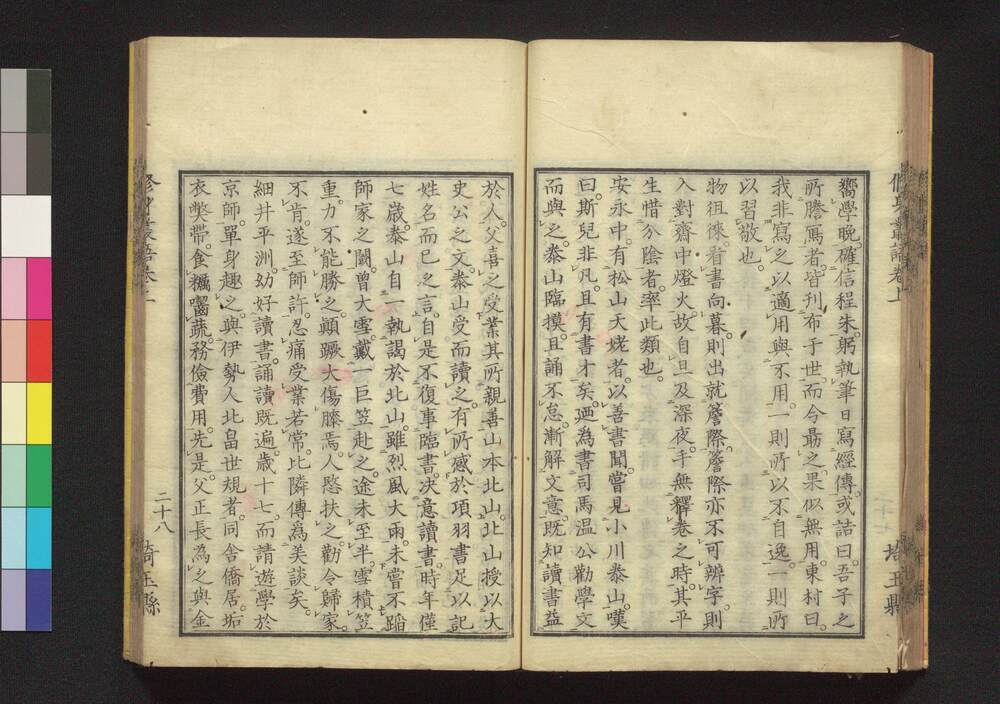 嚮學晩。確信程朱。躬執筆日寫經傳。或詰曰。吾子之
所謄寫者。皆刊布于世。而今勗之。果似無用。東村曰。
我非寫之以適用與不用。一則所以不自逸。一則所
以習敬也。
物徂徠。看書向暮。則出就簷際。簷際亦不可辨字。則
入對齋中燈火。故自旦及深夜。手無釋卷之時。其平
生惜分陰者。率此類也。
安永中。有松山天姥者。以善書聞。嘗見小川泰山。嘆
曰。斯兒非凡。且有書才矣。廼為書司馬温公勸學文
而與之。泰山臨摸。且誦不怠。漸解文意。既知讀書益
於人。父喜之。受業其所親善山本北山。北山授以大
史公之文。泰山受而讀之。有所感於項羽書足以記
姓名而已之言。自是不復事臨書。決意讀書。時年僅
七歲。泰山自一執謁於北山。雖烈風大雨。未嘗不蹈
師家之閾。曾大雪。戴一巨笠赴之。途未至半。雪積笠
重。力不能勝之。顛蹶大傷膝焉。人愍扶之。勸令歸家。
不肯。遂至師許。忍痛受業若常。比隣傳爲美談矣。
細井平洲。幼好讀書。誦讀既遍。歲十七。而請遊學於
京師。單身趣之。與伊勢人北畠世規者。同舍僑居。垢
衣獘帶。食糲囓蔬。務儉費用。先是。父正長為之與金
修身叢語卷上
二十八
埼玉縣